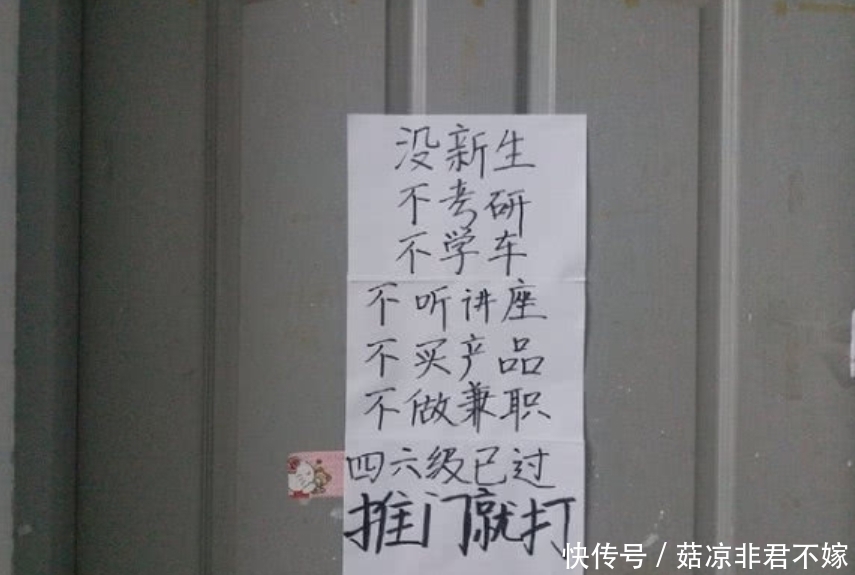 没新生
不考研
不学车
不听讲座
不买产品
不做兼职
四六级已过
推门就打
快传号 / 菇凉非君不嫁